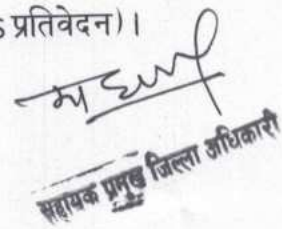 प्रतिवेदन)।
सहायक प्रमुख जिल्ला अधिकारी